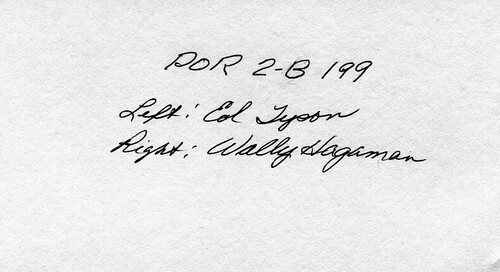 POR 2-B 199
Left: Ed Tyson
Right: Wally Hagaman